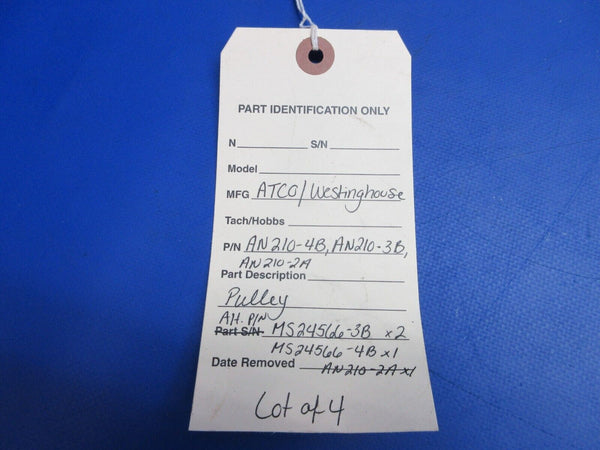 PART IDENTIFICATION ONLY
N S/N
Model
MFG ATCO/Westinghouse
Tach/Hobbs
P/N AN210-4B, AN210-3B,
AN210-2A
Part Description
Pulley
Alt. P/N
Part S/N MS24566-3B x2
MS24566-4B x1
Date Removed AN210-2A x1
Lot of 4